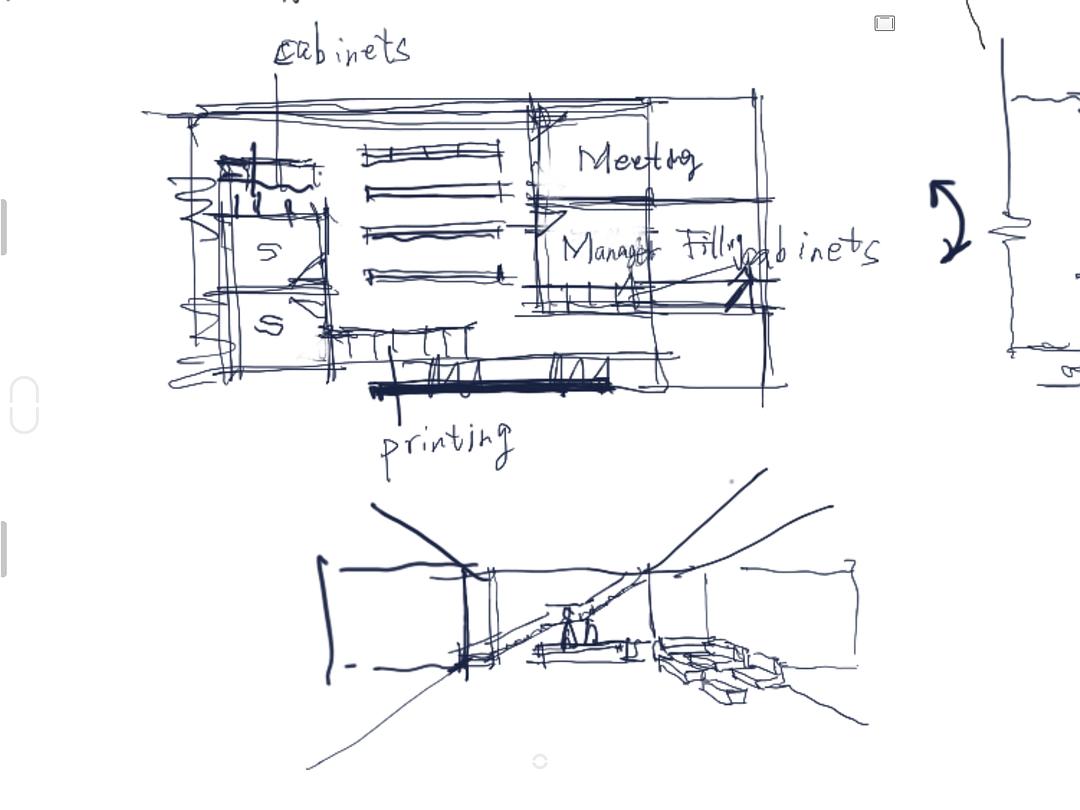 cabinets
Meeting
Manager Filling cabinets
S
S
printing